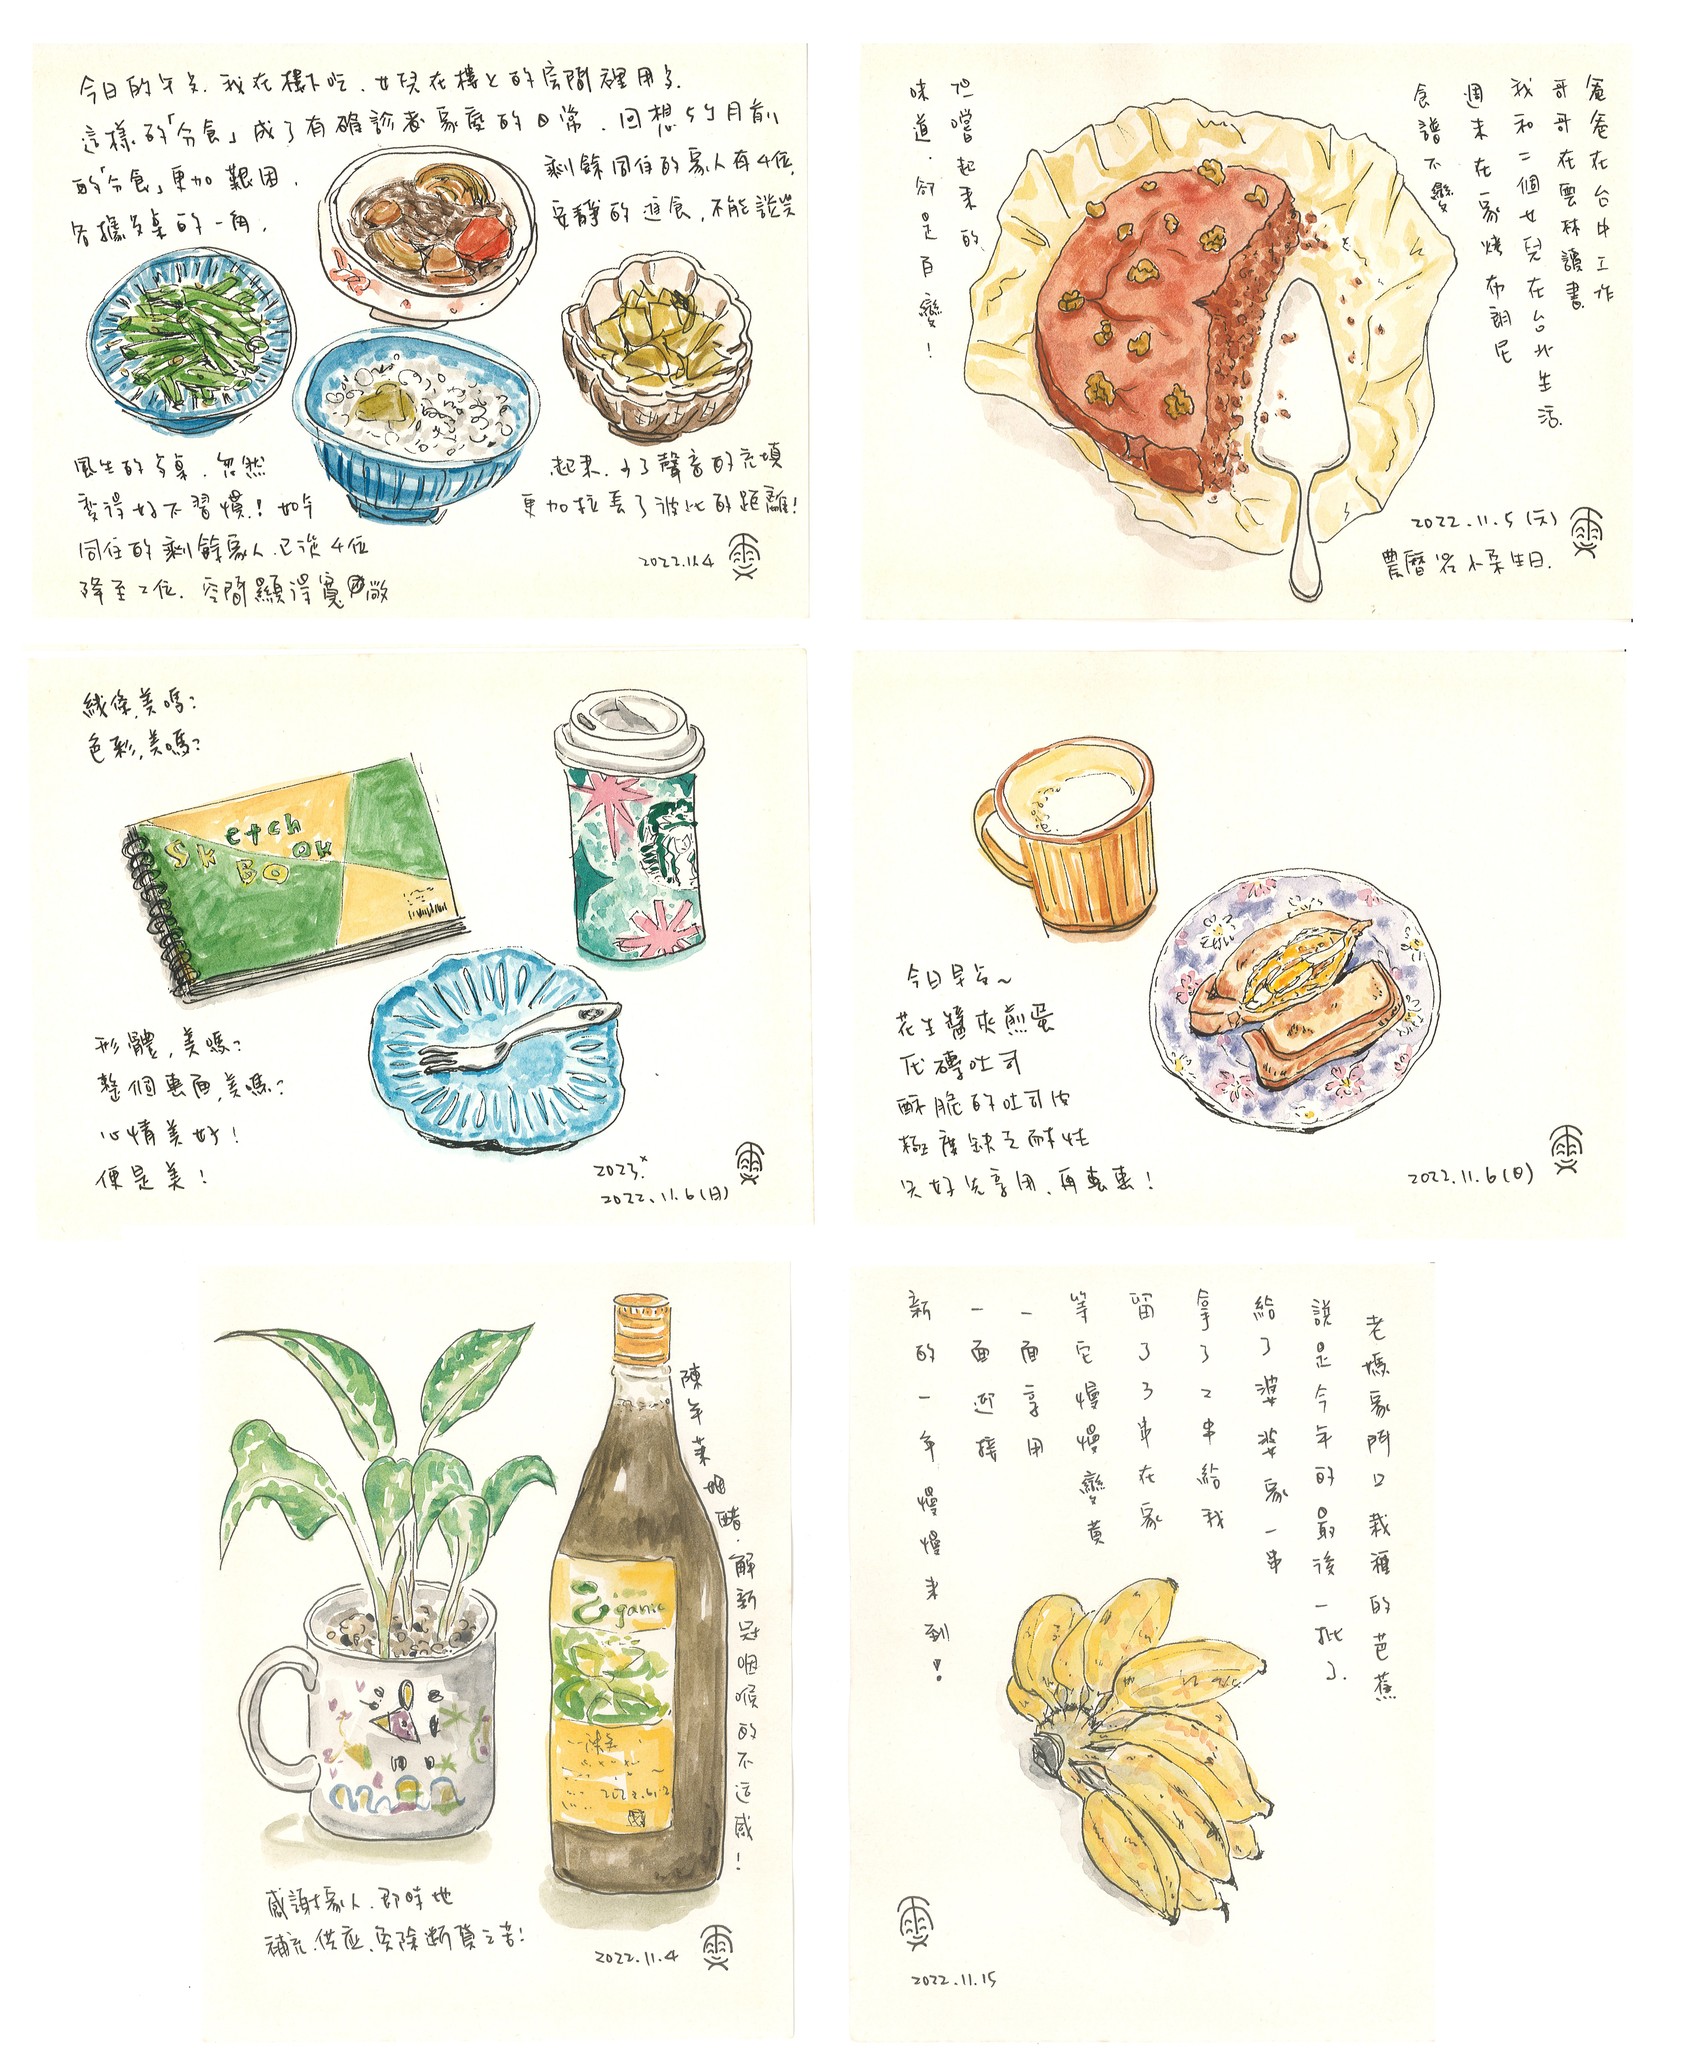 今日的午餐.我在樓下吃.女兒在樓上的房間裡用餐.
這樣的「分食」成了有確診者家庭的日常.回想5個月前
的「分食」更加艱困.
剩餘同住的家人有4位.
各據餐桌的一角.
安靜的進食,不能談笑
風生的餐桌.忽然
變得好不習慣!如今
同住的剩餘家人.已從4位
降至2位.空間顯得寬敞
起來.少了聲音的充填
更加拉長了彼此的距離!
2022.11.4
爸爸在台中工作
哥哥在雲林讀書
我和二個女兒在台北生活.
週末在家烤布朗尼
食譜不變
但嚐起來的
味道.卻是百變!
2022.11.5(六)
農曆 小 生日.
線條,美嗎?
色彩,美嗎?
Sketch
BOOK
形體,美嗎?
整個畫面,美嗎?
心情美好!
便是美!
2023.x
2022.11.6(日)
今日早台~
花生醬夾煎蛋
厚磚吐司
酥脆的吐司皮
極度缺乏耐性
只好先享用.再畫畫!
2022.11.6(日)
陳年菓 醋.解新冠咽喉的不適感!
ganic
陳年
感謝家人.即時地
補充.供應.免除斷貨之苦!
2022.11.4
老媽家門口栽種的芭蕉
說是今年的最後一批了.
給了婆婆家一串
拿了2串給我
留了3串在家
等它慢慢變黃
一面享用
一面迎接
新的一年慢慢來到!
2022.11.15